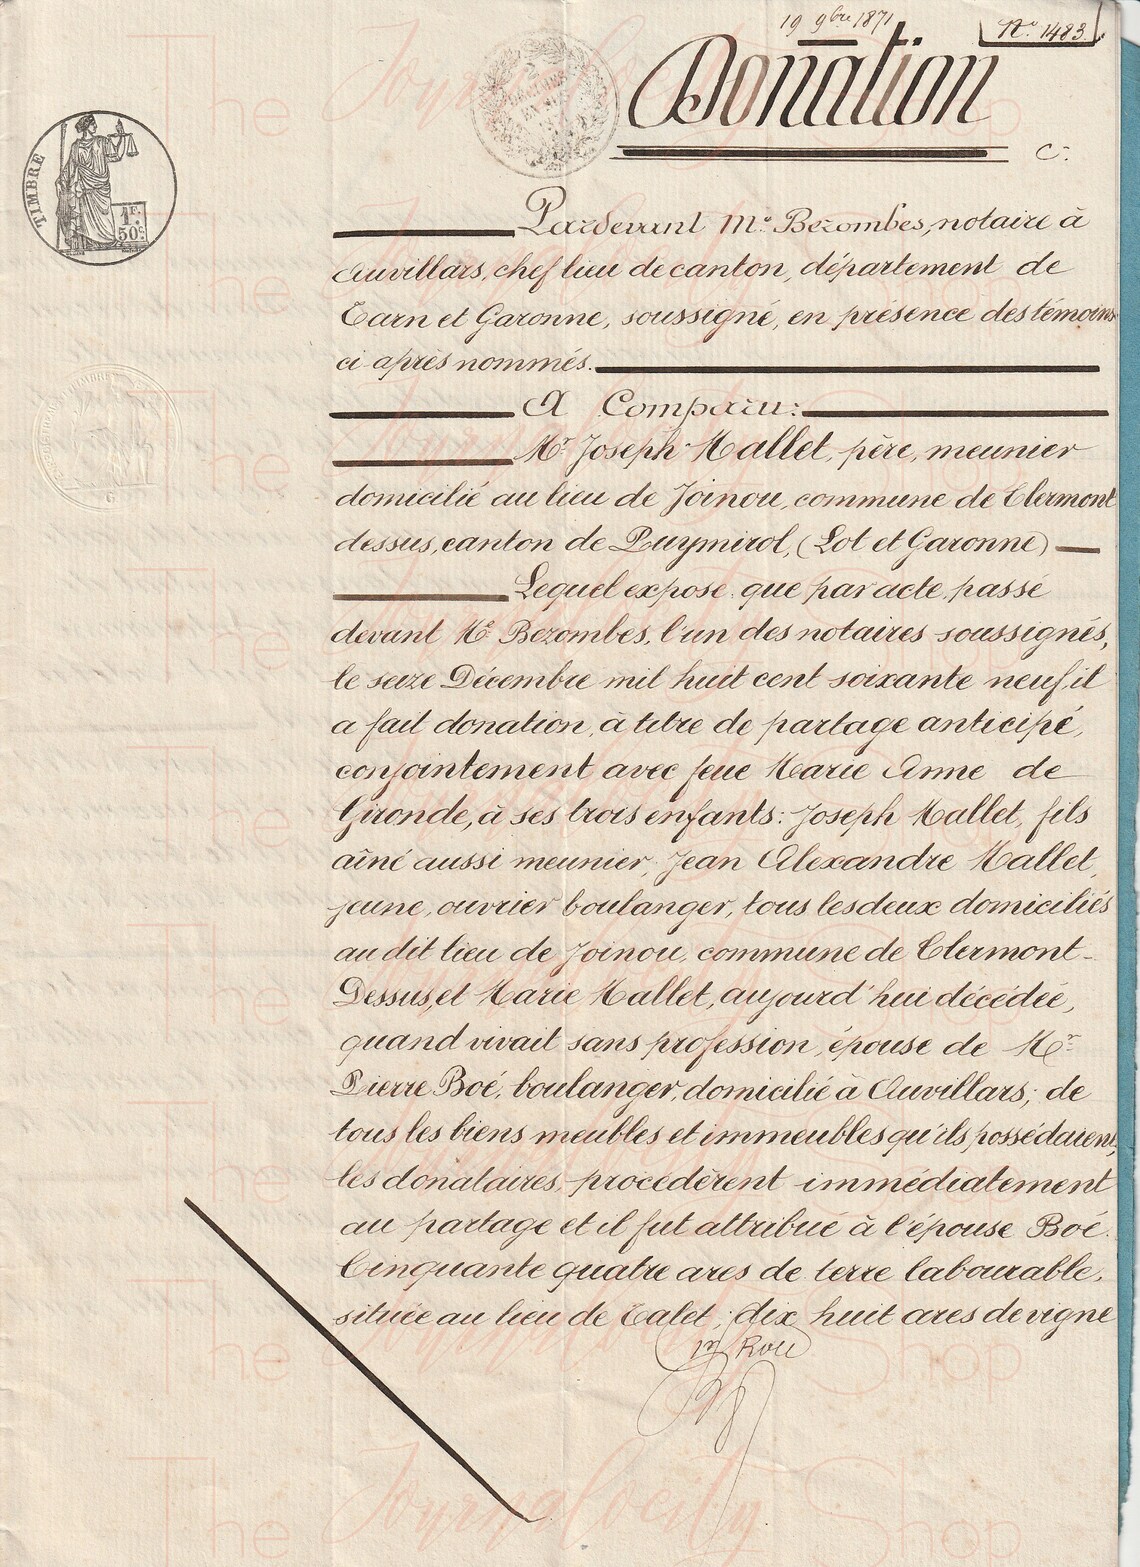 19 9bre 1871
No 1483.
Donation
C.
TIMBRE
1F.
50c.
Pardevant Me Bezombes, notaire à
Auvillars, chef lieu de canton, département de
Tarn et Garonne, soussigné, en présence des témoins
ci après nommés.
A Comparu:
Mr Joseph Mallet, père, meunier
domicilié au lieu de Joinou, commune de Clermont
dessus, canton de Puymirol, (Lot et Garonne)
Lequel expose que par acte, passé
devant Me Bezombes, l'un des notaires soussignés,
le seize Décembre mil huit cent soixante neuf, il
a fait donation, à titre de partage anticipé,
conjointement avec feue Marie Anne de
Gironde, à ses trois enfants: Joseph Mallet, fils
aîné aussi meunier, Jean Alexandre Mallet,
jeune, ouvrier boulanger, tous les deux domiciliés
au dit lieu de Joinou, commune de Clermont-
Dessus, et Marie Mallet, aujourd'hui décédée,
quand vivait sans profession, épouse de Mr
Pierre Boé, boulanger, domicilié à Auvillars; de
tous les biens meubles et immeubles qu'ils possédaient,
les donataires, procédèrent immédiatement
au partage et il fut attribué à l'épouse Boé.
Cinquante quatre ares de terre labourable,
située au lieu de Talet; dix huit ares de vigne
The Journalocity Shop